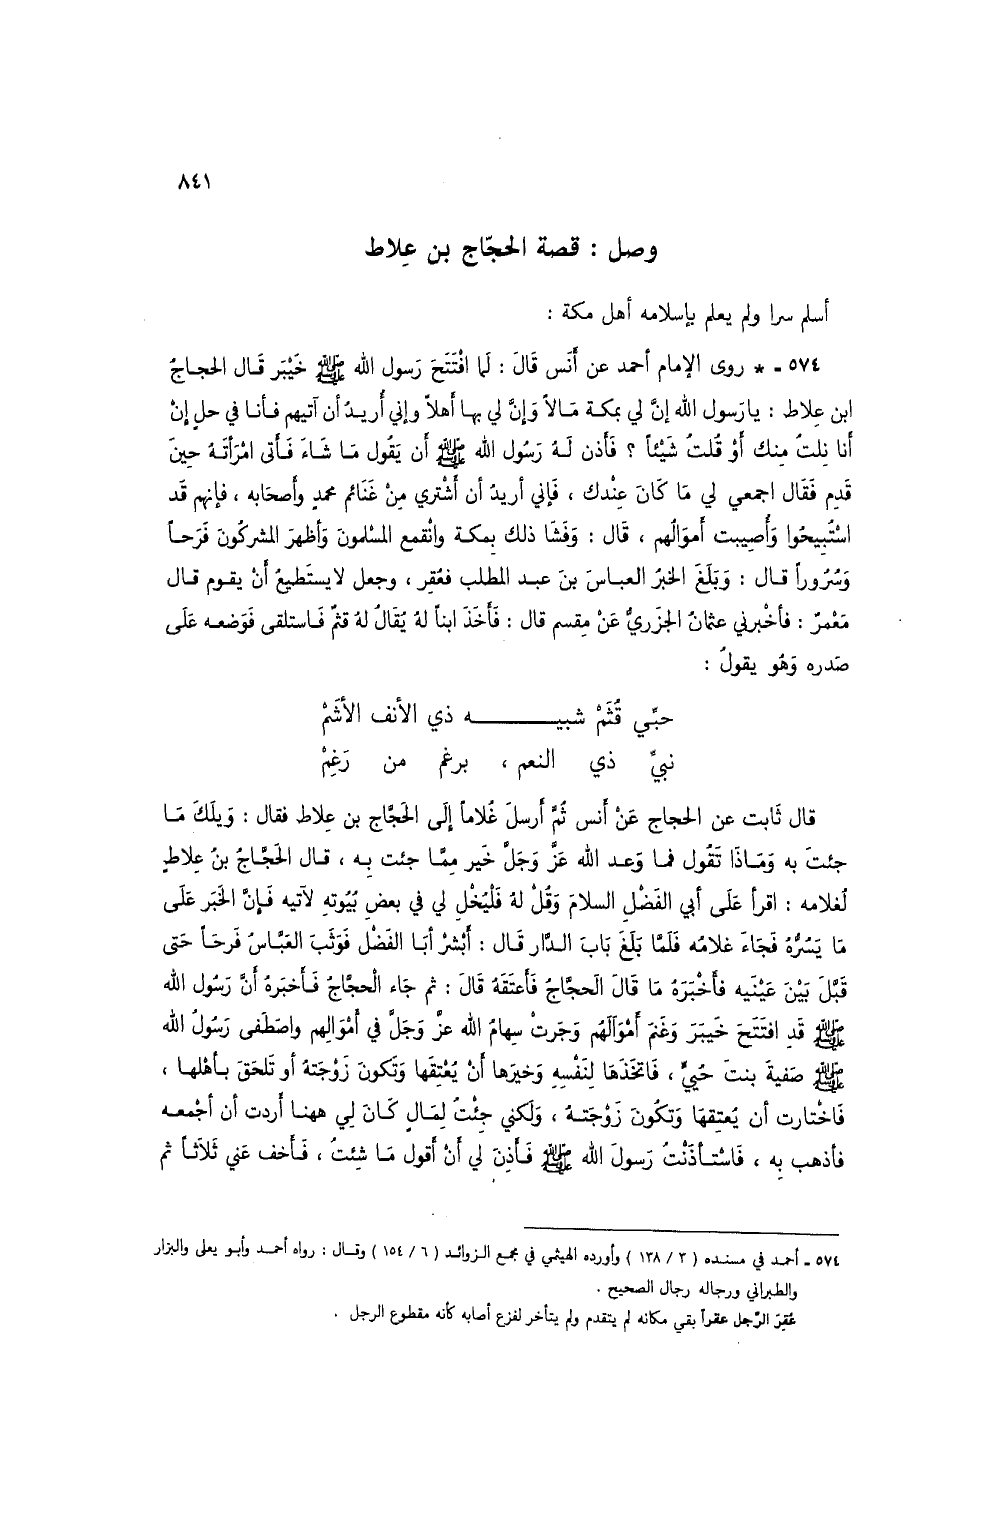 ٨٤١
وصل : قصة الحجّاج بن عِلاط
أسلم سرا ولم يعلم بإسلامه أهل مكة :
٥٧٤ - * روى الإمام أحمد عن أَنَس قَالَ : لَما افْتَتَحَ رَسول الله ﷺ خَيْبَر قَـال الحجاجُ
ابن عِلاط : يا رَسول الله إنَّ لي بمكـة مَـالاً وَإنَّ لي بهـا أهلاً وإني أُريـدُ أن آتيهم فـأنـا في حل إنْ
أنا نِلتُ مِنك أَوْ قُلتُ شَيْئاً ؟ فَأذن لَـهُ رَسُول الله ﷺ أن يَقُول مَـا شَـاءَ فَـأتى امْرَأتَـهُ حِينَ
قَدِم فَقَال اجمعي لي مَا كَانَ عِنْدك ، فَإني أريدُ أن أَشْتري مِنْ غَنَائم محمدٍ وأصحَابه ، فإنهم قَد
اسْتُبِيحُوا وَأُصِيبت أموَالُهم ، قَال : وَفَشَا ذلك بمكـة وانْقمع المسْلمونَ وَأظهرَ المشركُونَ فَرَحـاً
وَسُرُوراً قـال : وَبَلَغَ الخبرُ العبـاسَ بنَ عبـد المطلب فعُقِر ، وجعل لا يستَطيعُ أَنْ يقـوم قـال
مَعْمرٌ : فأخْبرني عثمانُ الجزريُّ عَنْ مِقسم قال : فَأخَذَ ابناً لهُ يُقَالُ لهُ قثمٌ فَـاستلقى فَوَضعـه عَلَى
صَدره وَهُو يقولُ :
حبّي قُثَمْ شبيـــــــــه ذي الأنف الأشَمْ
نبيِّ ذي النعم ، برغم من رَغِمْ
قال ثَابت عن الحجاج عَنْ أَنس ثُمَّ أَرسلَ غُلاماً إلَى الحَجَّاج بن عِلاط فقال : وَيلَكَ مَـا
جئتَ به وَمَـاذَا تَقُول فمـا وَعـد الله عَزَّ وَجَلَّ خَير مِمَّـا جئت بِـه ، قـال الحَجَّـاجُ بنُ عِلاطٍ
لغلامه : اقرأ عَلَى أبي الفَضْلِ السلامَ وَقُلْ لهُ فَلْيُخْلِ لي في بعضِ بيُوته لآتيه فَـإنَّ الخَبَر عَلَى
مَا يَسُرُّهُ فَجَاءَ غلامُه فَلَمَّا بَلَغَ بَابَ الـدَّار قَـال : أَبْشرْ أبـا الفَضْل فَوَثَبَ العَبَّـاسُ فَرحـاً حَتى
قَبَّلَ بَيْنَ عَيْنَيه فأخْبَرَهُ مَا قَالَ الحَجَّاجُ فَأعتَقهُ قَالَ : ثم جَاء الْحجَّاجُ فَـأخبَرهُ أَنَّ رَسُول الله
ﷺ قَدِ افتَتَحَ خَيبَرَ وَغَنمَ أَمْوَالَهُم وَجَرتْ سِهامُ الله عزَّ وَجَلَّ في أَمْوَالِهم واصَطَفى رَسُولُ الله
ﷺ صَفيةَ بِنتَ حُييٍّ ، فَاتخَذَهَا لِنَفْسِهِ وَخيرَها أَنْ يُعْتِقَها وَتَكونَ زَوْجَتهُ أو تَلحَقَ بـأهْلهـا ،
فَاخْتارت أن يُعتِقهَا وَتكُونَ زَوْجَتـهُ ، وَلكني جِئْتُ لِمَـال كَـانَ لِي ههنـا أَردت أن أجْمعـه
فأذهب بِه ، فَاسْتـأذَنْتُ رَسولَ الله ﷺ فَـأذِنَ لي أنْ أقول مَـا شِئتُ ، فَـأخف عَني ثَلاثَـاً ثم
٥٧٤ - أحمـد في مسنـده ( ٣ / ١٣٨ ) وأورده الهيثمي في مجمع الـزوائـد ( ٦ / ١٥٤ ) وقـال : رواه أحمـد وأبو يعلى والبزار
والطبراني ورجاله رجال الصحيح .
عُقِرَ الرَّجل عقراً بقي مكانه لم يتقدم ولم يتأخر لفزع أصابه كأنه مقطوع الرجل .